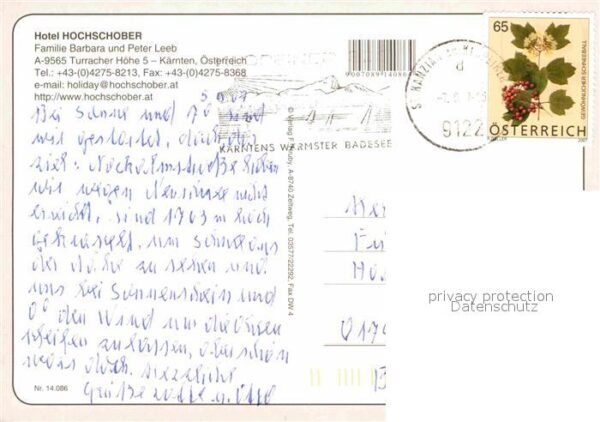 Hotel HOCHSCHOBER
Familie Barbara und Peter Leeb
A-9565 Turracher Höhe 5 – Kärnten, Österreich
Tel.: +43-(0)4275-8213, Fax: +43-(0)4275-8368
e-mail: holiday@hochschober.at
http://www.hochschober.at
5.9.07
Bei Sonne und 7° sind
wir gestartet, doch das
Ziel: Nockalmstraße haben
wir wegen Neuschnee nicht
erreicht, sind 1763 m hoch
um Schnee aus
der Nähe zu sehen und
uns bei Sonnenschein und
0° den Wind um die Ohren
pfeifen zu lassen, aber schön
wars doch. Herzliche
Grüße
Nr. 14.086
© Verlag F. A-8740 Zeltweg, Tel. 03577/22292, Fax DW 4
9007089140864
KÄRNTENS WÄRMSTER BADESEE
9122
65
GEWÖHNLICHER SCHNEEBALL
ÖSTERREICH
2007
privacy protection
Datenschutz